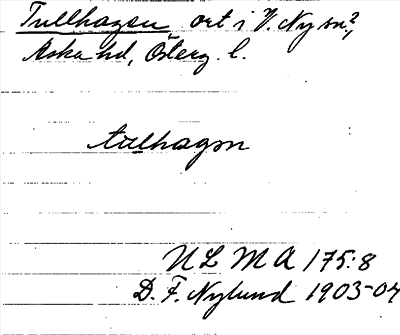 Tullhagen ort i V. Ny sn?,
Aska hd, Österg. l.
tulhagən
ULMA 175:8
D. F. Nylund 1903-04